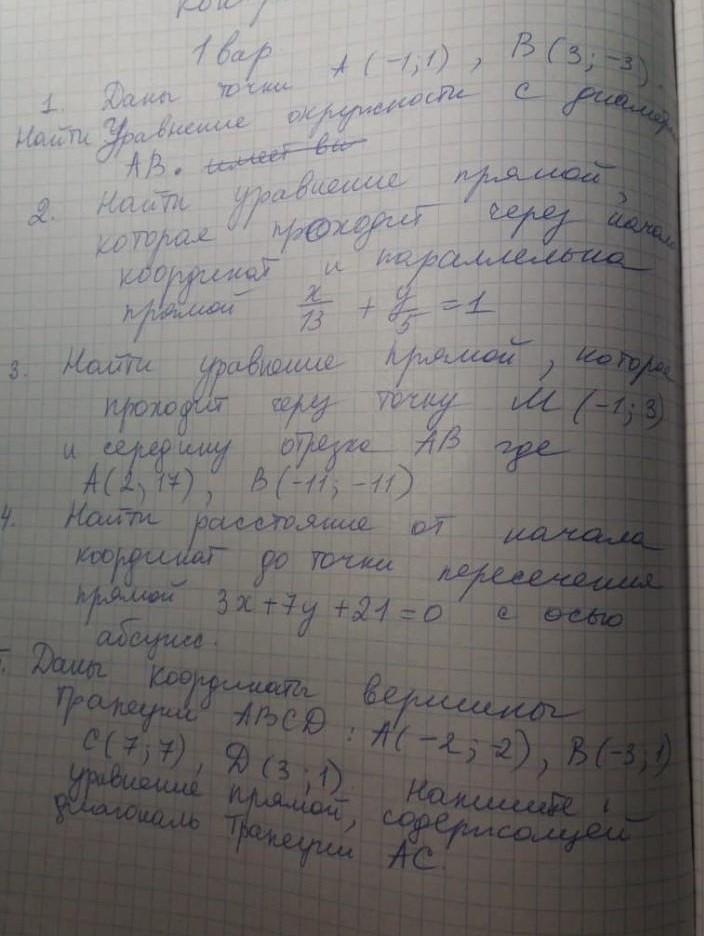 1 вар
1. Даны точки A (-1; 1) , B (3; -3).
Найти Уравнение окружности с
AB.
2. Найти уравнение прямой,
которая проходит через начал
координат и параллельна
прямой x/13 + y/5 = 1
3. Найти уравнение прямой, которая
проходит через точку M (-1; 3)
и середину отрезка AB где
A(2; 17), B(-11; -11)
4. Найти расстояние от начала
координат до точки пересечения
прямой 3x+7y+21=0 с осью
абсцисс.
Даны координаты вершины
Трапеции ABCD : A(-2; -2), B(-3; 1)
C(7; 7), D(3; 1). Напишите
уравнение прямой, содержащей
диагональ Трапеции AC.